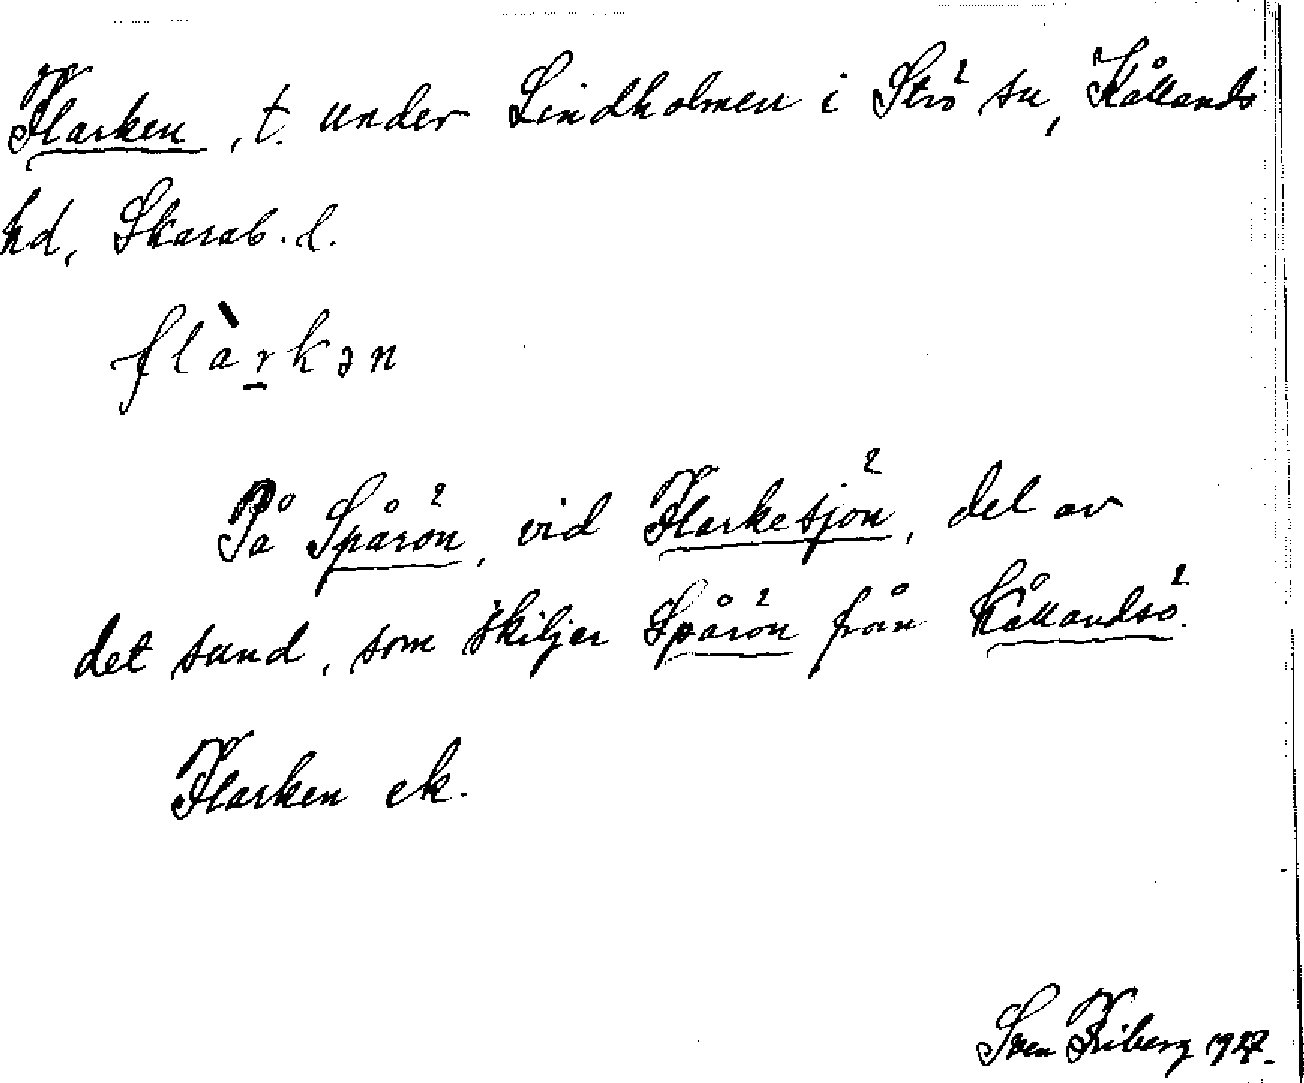 Flarken, t. under Lindholmen i Strö sn, Kållands
hd, Skarab. l.
flàrkən
På Spårön, vid Flarkesjön, del av
det sund, som skiljer Spårön från Kållandsö.
Flarken ek.
Sven Friberg 1927.